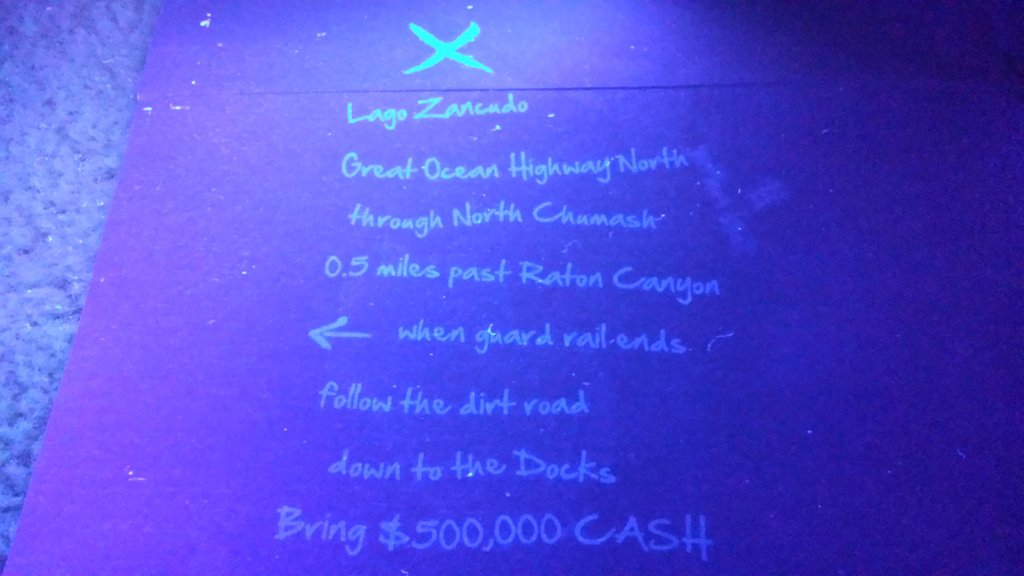 Lago Zancudo
Great Ocean Highway North
through North Chumash
0.5 miles past Raton Canyon
← when guard rail ends
follow the dirt road
down to the Docks
Bring $500,000 CASH